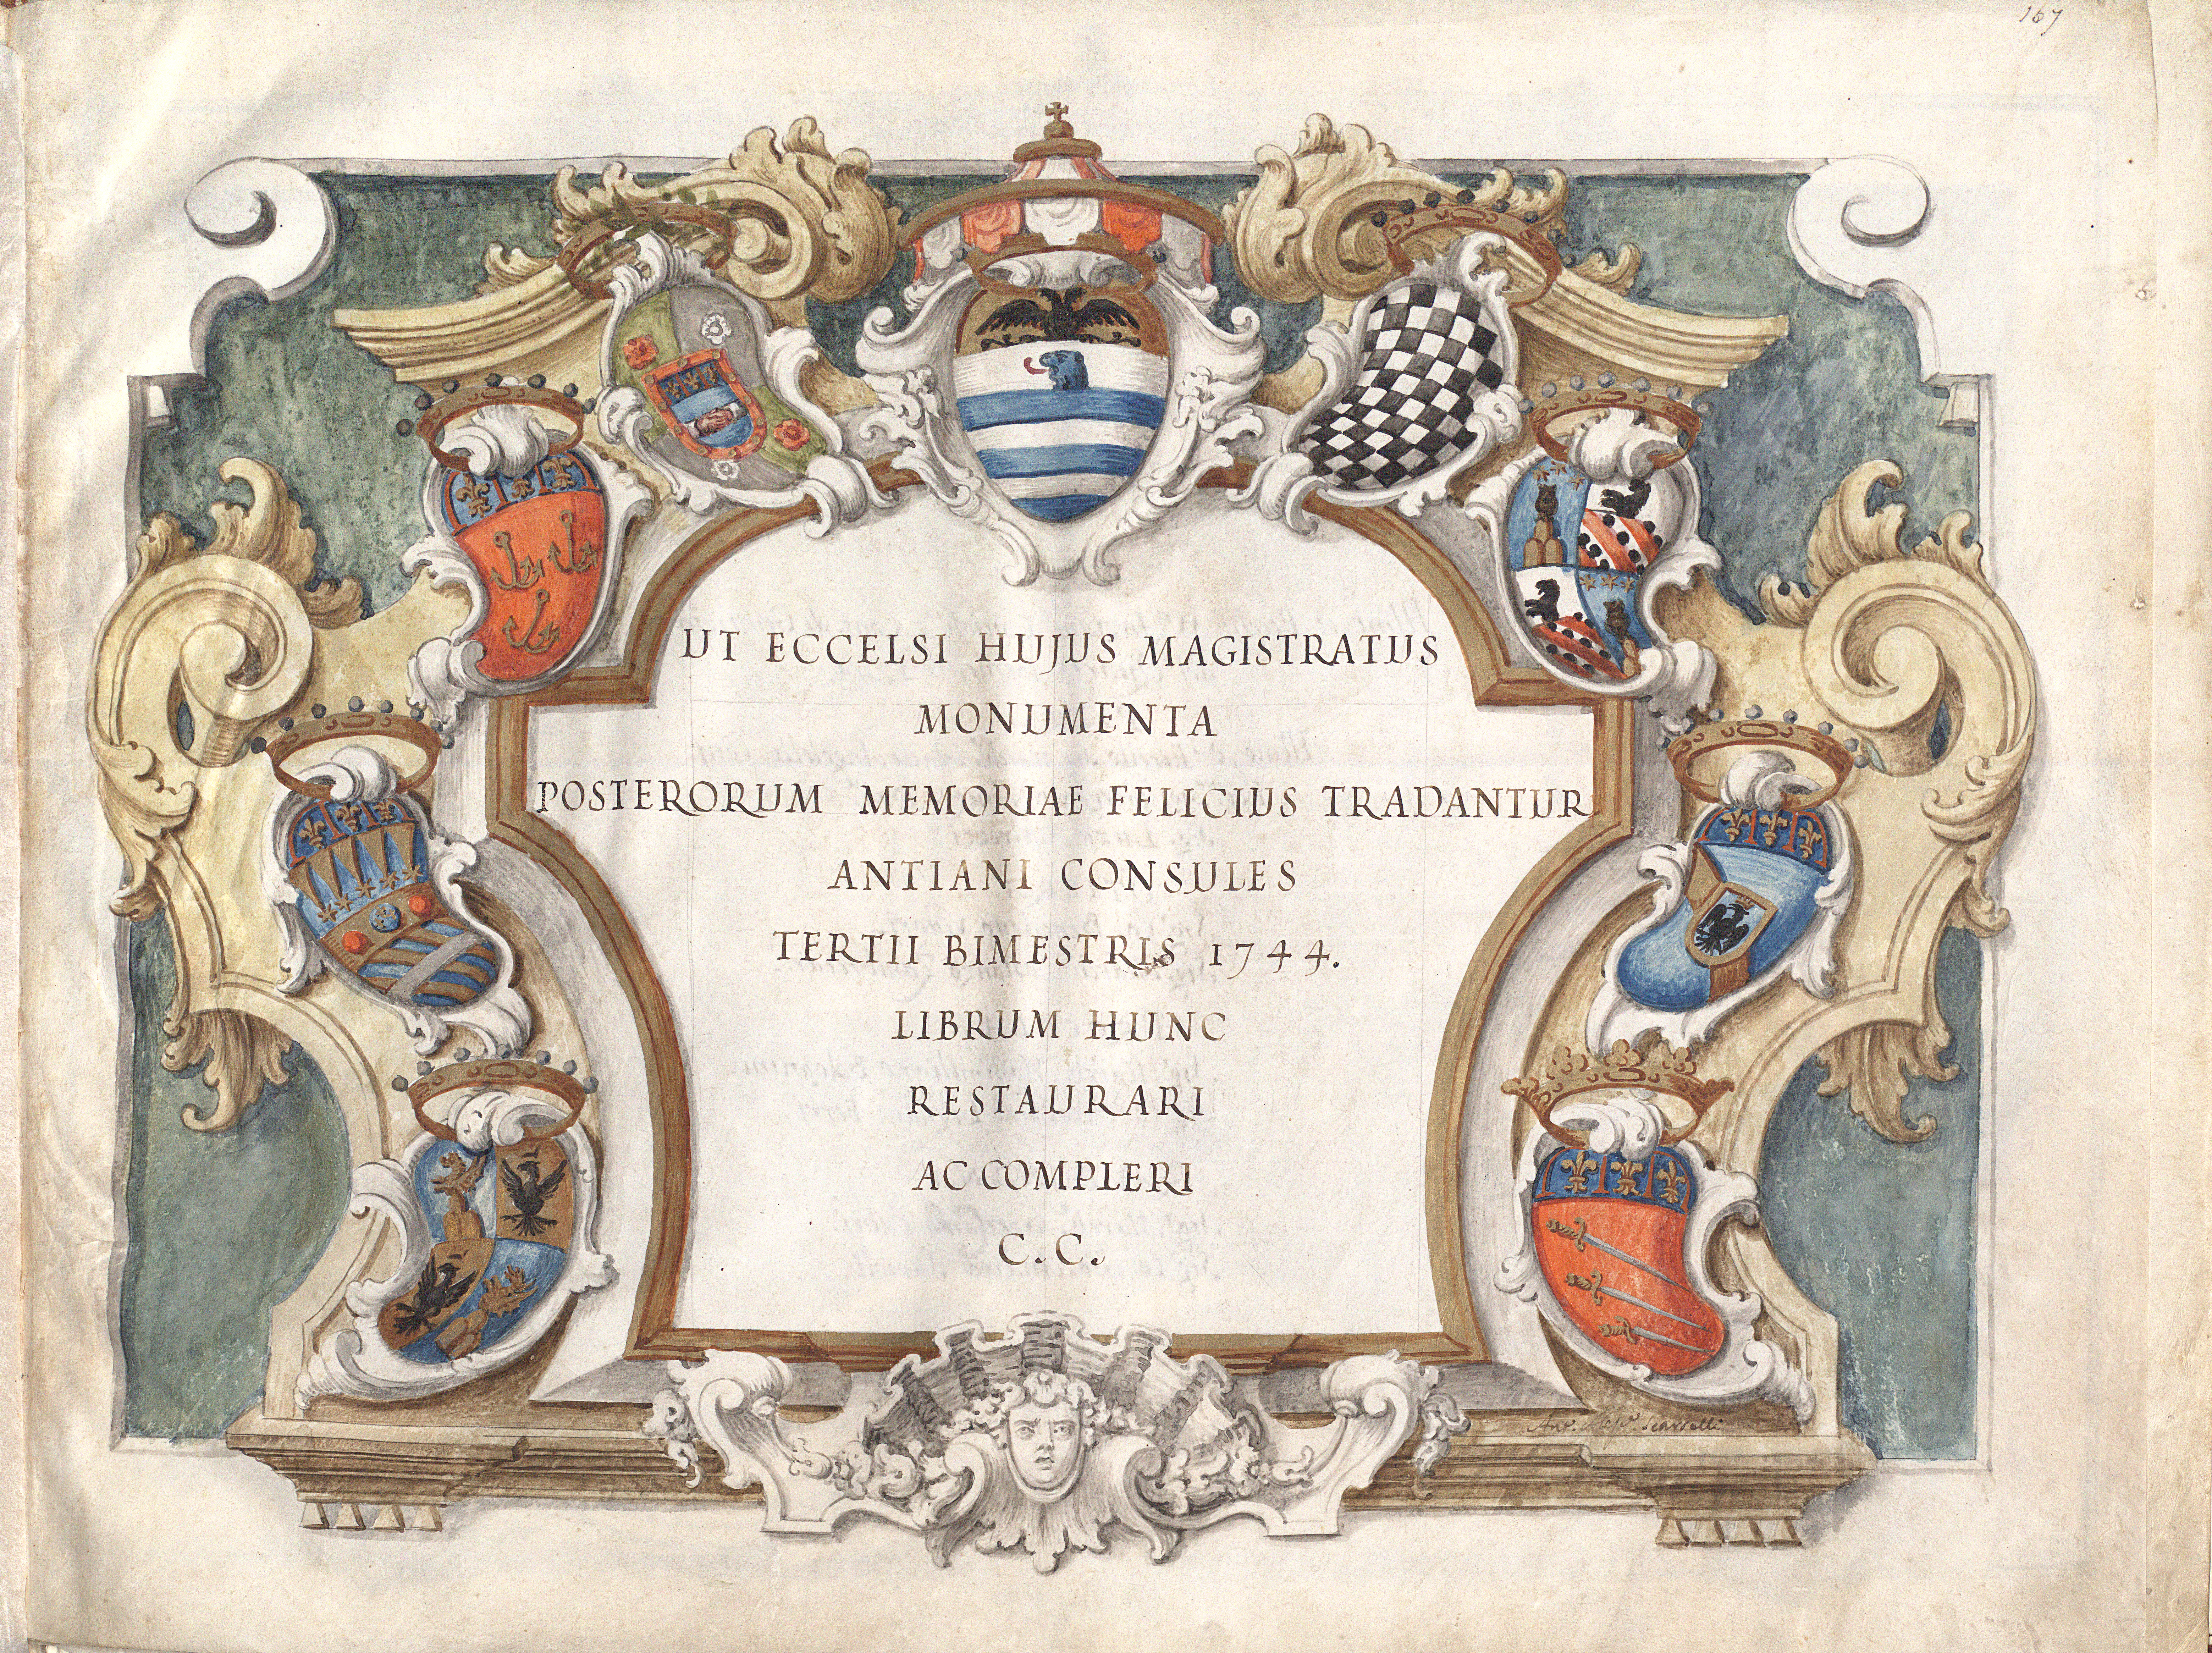 167
UT ECCELSI HUJUS MAGISTRATUS
MONUMENTA
POSTERORUM MEMORIAE FELICIUS TRADANTUR
ANTIANI CONSULES
TERTII BIMESTRIS 1744.
LIBRUM HUNC
RESTAURARI
AC COMPLERI
C. C.
Scarselli